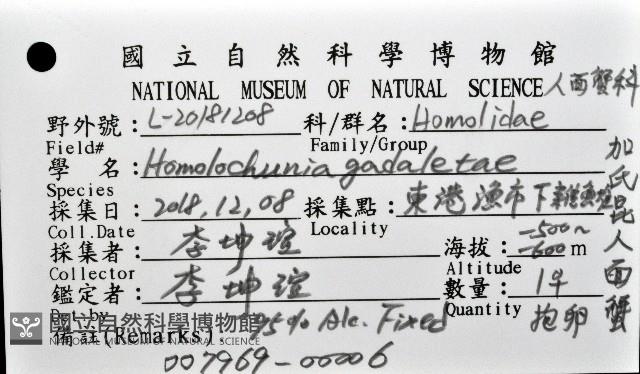 國立自然科學博物館
NATIONAL MUSEUM OF NATURAL SCIENCE 人面蟹科
野外號: L-20181208 科/群名: Homolidae
Field# Family/Group
學 名: Homolochunia gadaletae
Species
採集日: 2018,12,08 採集點: 東港漁市下雜魚
Coll.Date Locality
採集者: 李坤瑄 海拔: -500~-600 m
Collector Altitude
鑑定者: 李坤瑄 數量: 1♀
Det.by Quantity 抱卵
備註(Remarks) 95% Alc. Fixed
007969-00006
加氏昆人面蟹
國立自然科學博物館
NATIONAL MUSEUM OF NATURAL SCIENCE